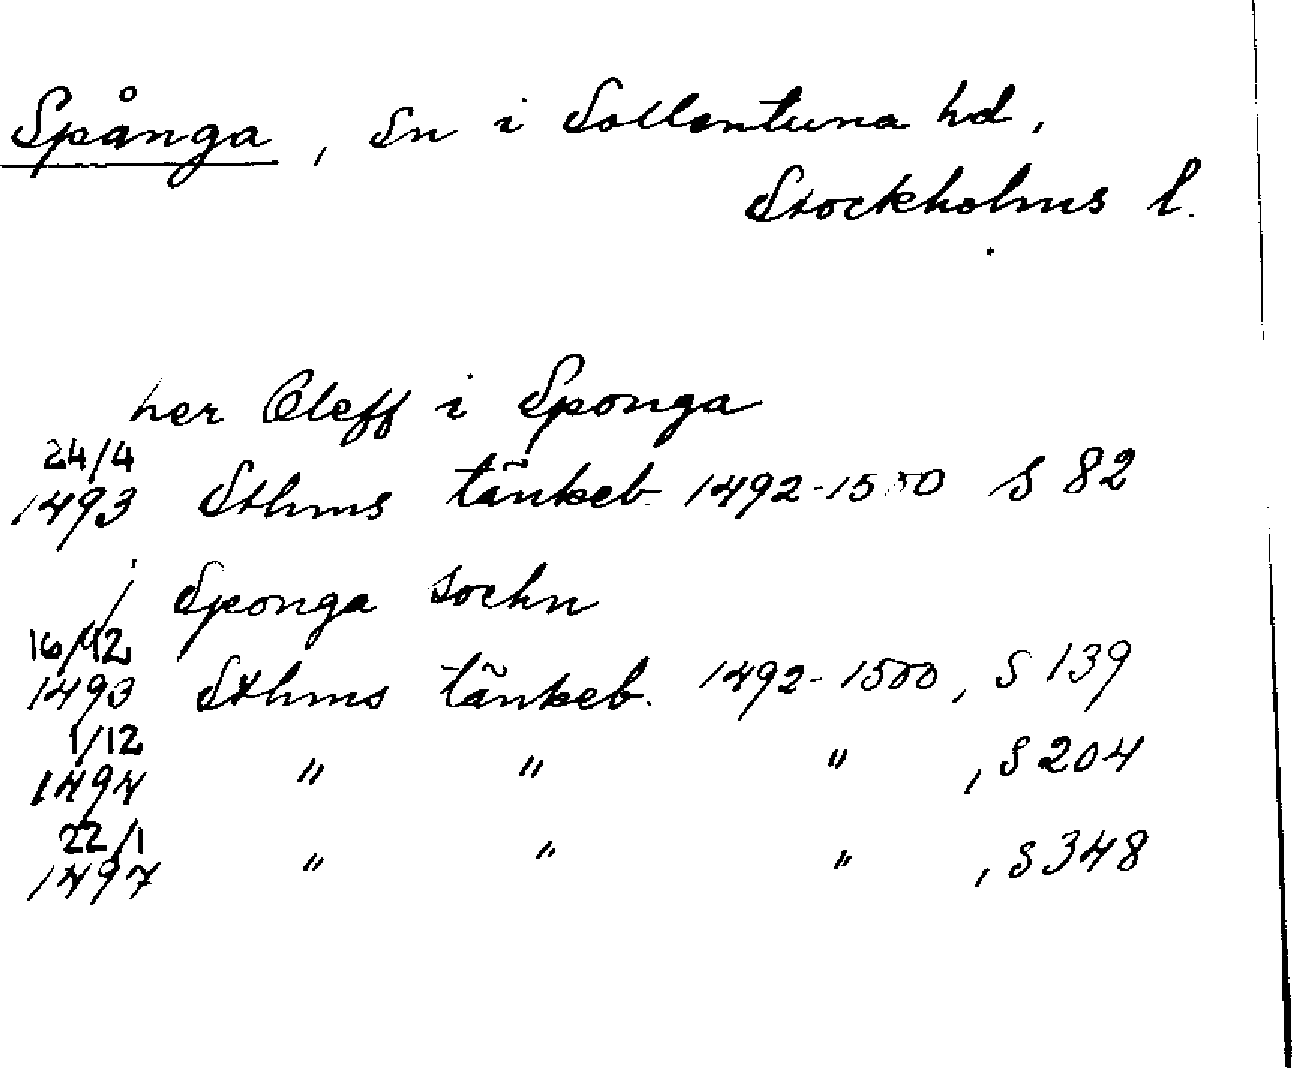 Spånga, Sn i Sollentuna hd,
Stockholms l.
her Oleff i Sponga
24/4
1493 Sthms tänkeb 1492-1500 S 82
j Sponga sockn
16/12
1493 Sthms tänkeb. 1492-1500, S 139
1/12
1494 " " " , S 204
22/1
1497 " " " , S 348